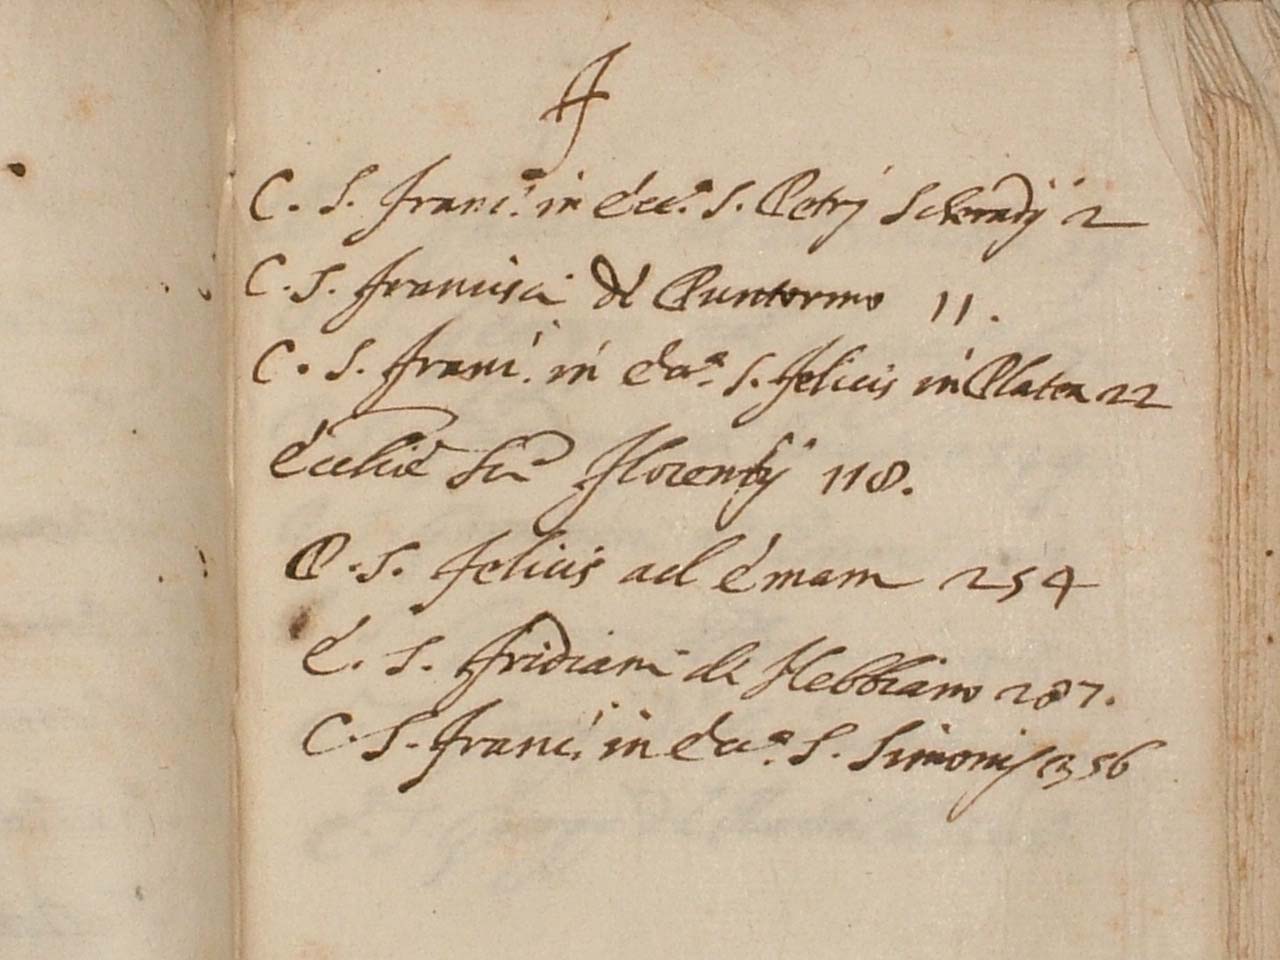 F
C. S. Franc.i in Ecc.a S. Petri Scheradij 2
C. S. Francisci de Puntormo 11.
C. S. Franc.i in Ecc.a S. Felicis in Platea 22
Ecclie Sti Florentij 118.
P. S. Felicis ad Emam 254
E. S. Fridiani de Nebbiano 287.
C. S. Franc.i in Ecc.a S. Simonis 356